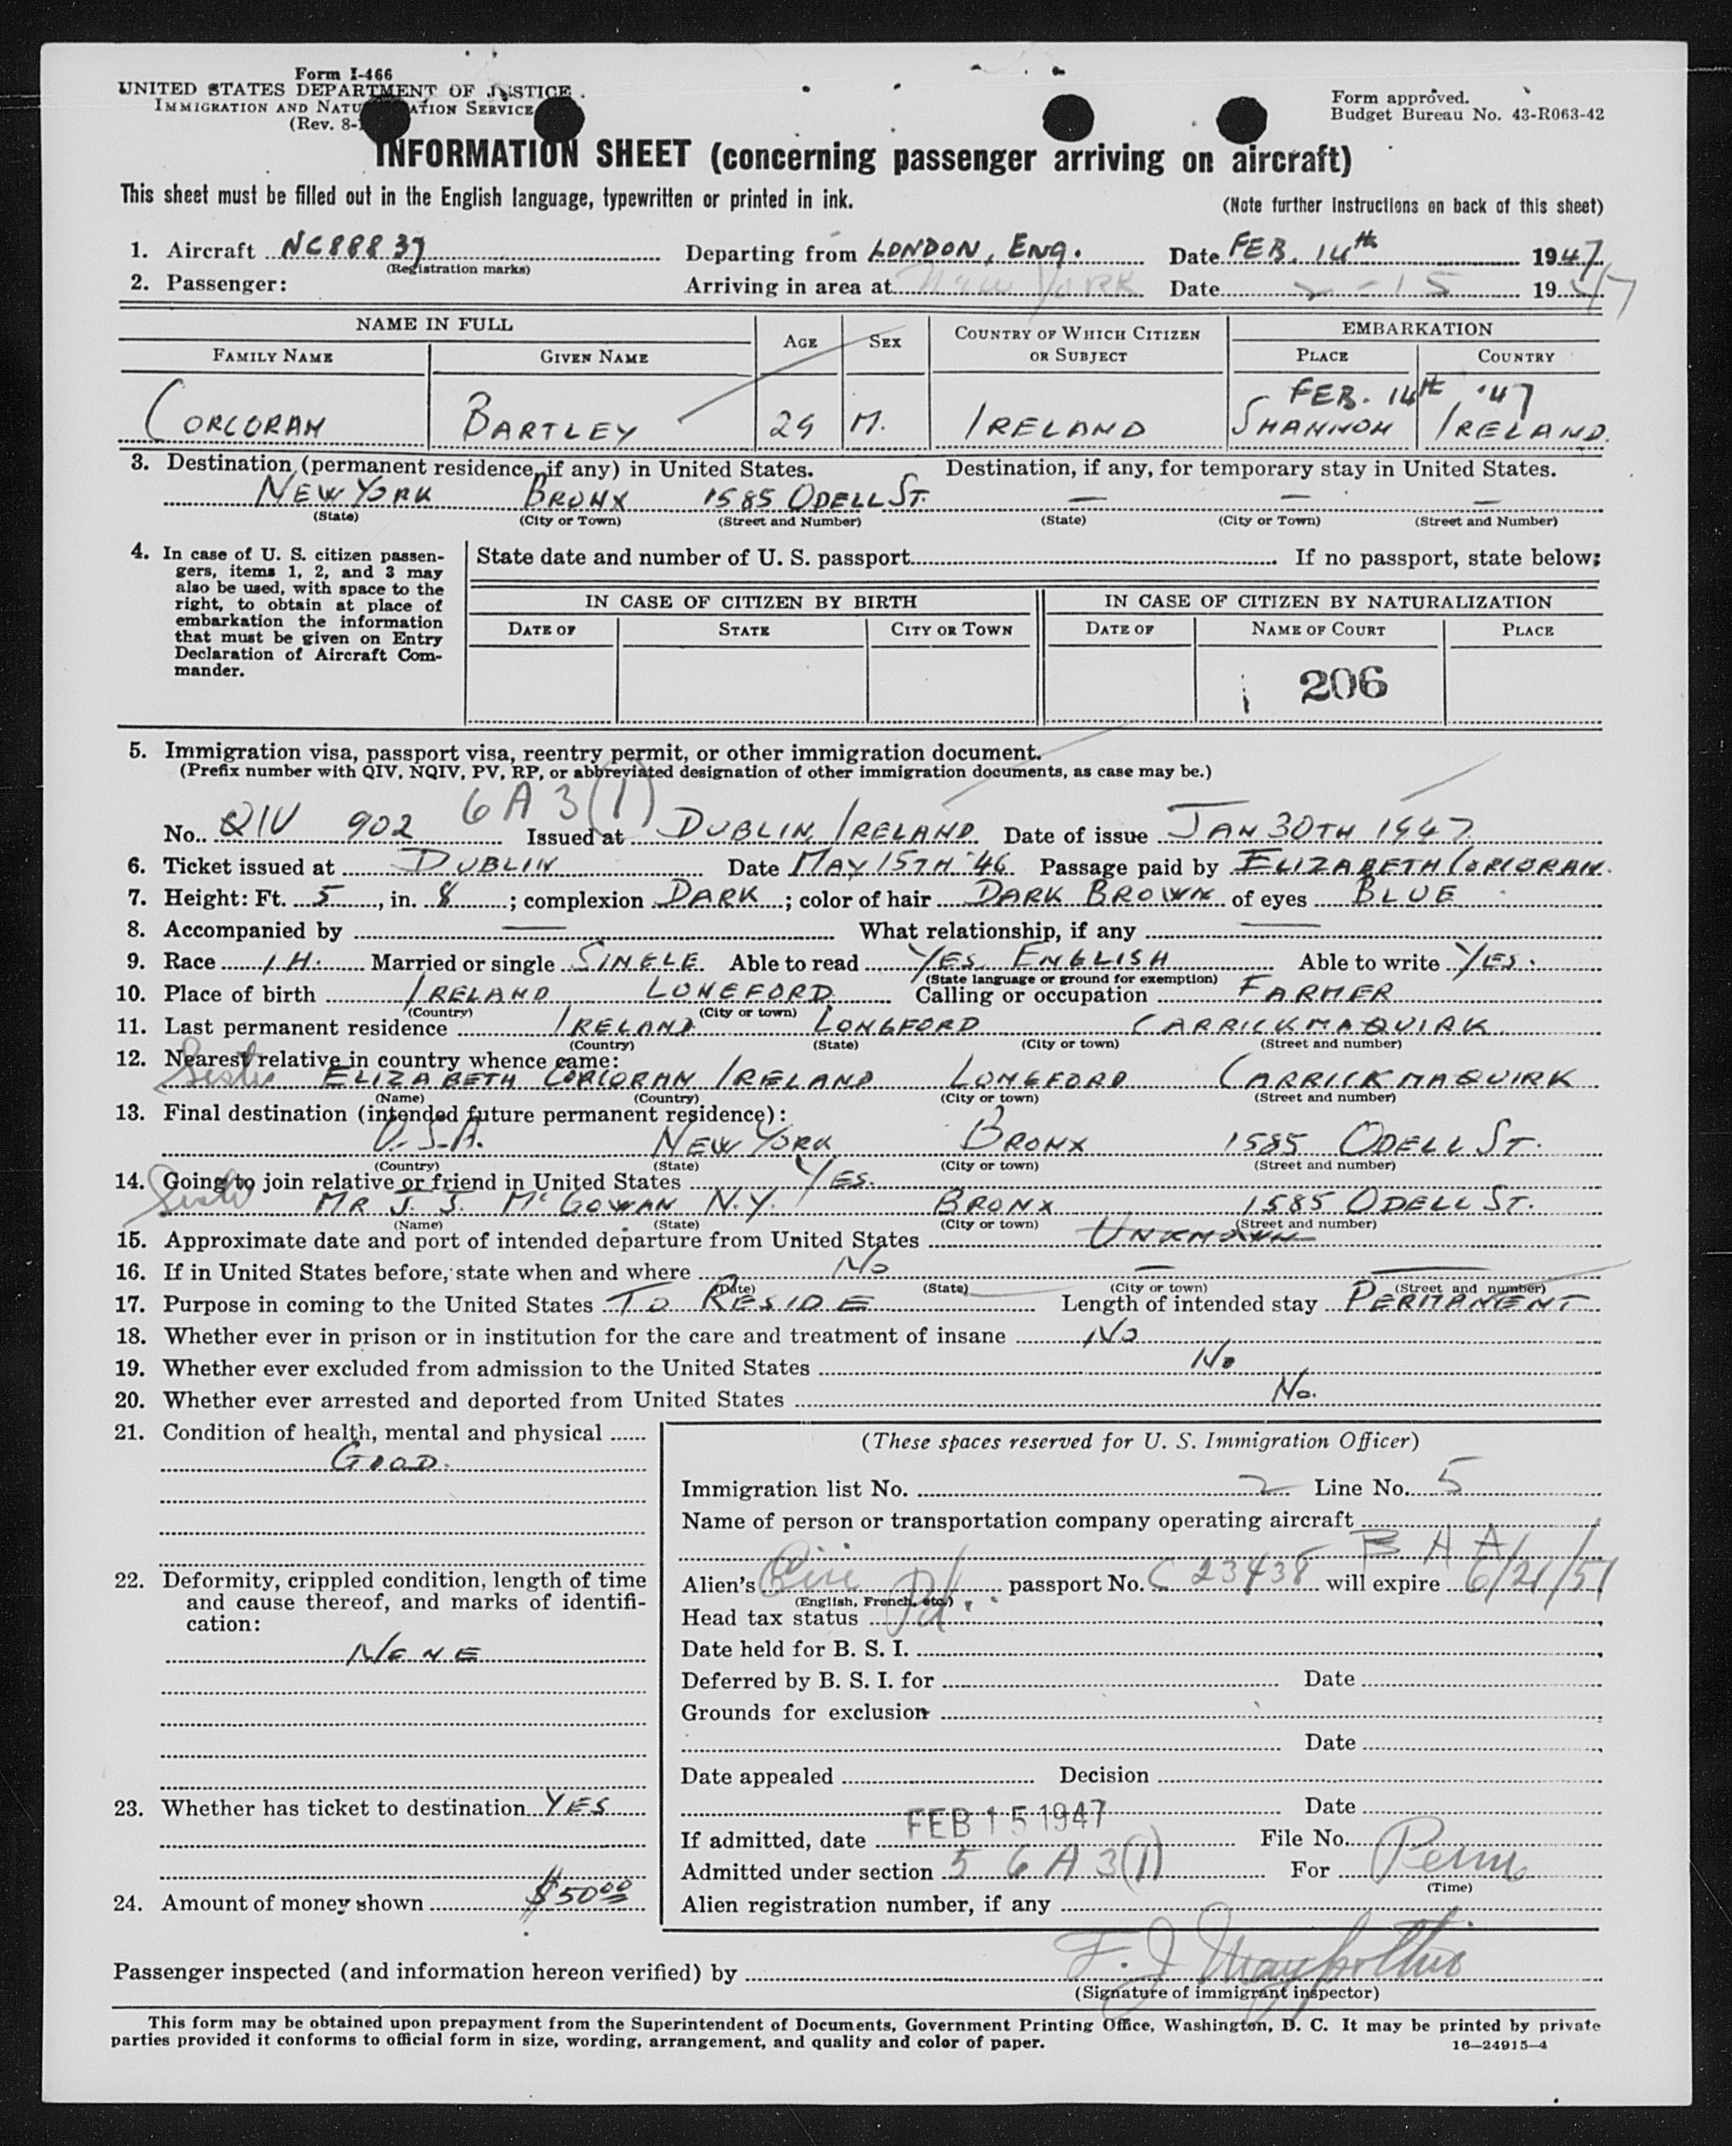 Form I-466
UNITED STATES DEPARTMENT OF JUSTICE
IMMIGRATION AND NATU ATION SERVICE
(Rev. 8-
Form approved.
Budget Bureau No. 43-R063-42
INFORMATION SHEET (concerning passenger arriving on aircraft)
This sheet must be filled out in the English language, typewritten or printed in ink.
(Note further instructions on back of this sheet)
1. Aircraft NC88837 Departing from LONDON, ENG. Date FEB. 14th 1947
(Registration marks)
2. Passenger: Arriving in area at New York Date 2-15 1947
NAME IN FULL AGE SEX COUNTRY OF WHICH CITIZEN OR SUBJECT EMBARKATION
FAMILY NAME GIVEN NAME PLACE COUNTRY
FEB. 14th, '47
CORCORAN BARTLEY 29 M. IRELAND SHANNON IRELAND.
3. Destination (permanent residence, if any) in United States. Destination, if any, for temporary stay in United States.
NEW YORK BRONX 1585 ODELL ST. — — —
(State) (City or Town) (Street and Number) (State) (City or Town) (Street and Number)
4. In case of U. S. citizen passen-
gers, items 1, 2, and 3 may
also be used, with space to the
right, to obtain at place of
embarkation the information
that must be given on Entry
Declaration of Aircraft Com-
mander.
State date and number of U. S. passport. If no passport, state below:
IN CASE OF CITIZEN BY BIRTH IN CASE OF CITIZEN BY NATURALIZATION
DATE OF STATE CITY OR TOWN DATE OF NAME OF COURT PLACE
206
5. Immigration visa, passport visa, reentry permit, or other immigration document.
(Prefix number with QIV, NQIV, PV, RP, or abbreviated designation of other immigration documents, as case may be.)
6A3(1)
No. QIV 902 Issued at DUBLIN, IRELAND Date of issue JAN 30TH 1947
6. Ticket issued at DUBLIN Date MAY 15TH '46 Passage paid by ELIZABETH CORCORAN.
7. Height: Ft. 5, in. 8; complexion DARK; color of hair DARK BROWN of eyes BLUE
8. Accompanied by — What relationship, if any —
9. Race IH. Married or single SINGLE Able to read YES ENGLISH Able to write YES.
(State language or ground for exemption)
10. Place of birth IRELAND LONGFORD. Calling or occupation FARMER
(Country) (City or town)
11. Last permanent residence IRELAND LONGFORD CARRICKMAQUIRK
(Country) (State) (City or town) (Street and number)
12. Nearest relative in country whence came:
Sister ELIZABETH CORCORAN IRELAND LONGFORD CARRICKMAQUIRK
(Name) (Country) (City or town) (Street and number)
13. Final destination (intended future permanent residence):
U.S.A. NEW YORK BRONX 1585 ODELL ST.
(Country) (State) (City or town) (Street and number)
14. Going to join relative or friend in United States YES.
Sister MR J. J. McGOWAN N.Y. BRONX 1585 ODELL ST.
(Name) (State) (City or town) (Street and number)
15. Approximate date and port of intended departure from United States UNKNOWN
16. If in United States before, state when and where NO —
(Date) (State) (City or town) (Street and number)
17. Purpose in coming to the United States TO RESIDE Length of intended stay PERMANENT
18. Whether ever in prison or in institution for the care and treatment of insane NO
19. Whether ever excluded from admission to the United States No
20. Whether ever arrested and deported from United States No.
21. Condition of health, mental and physical
GOOD.
22. Deformity, crippled condition, length of time
and cause thereof, and marks of identifi-
cation:
NONE
23. Whether has ticket to destination YES
24. Amount of money shown $50 00
(These spaces reserved for U. S. Immigration Officer)
Immigration list No. 2 Line No. 5
Name of person or transportation company operating aircraft
B A A
Alien's Eire passport No. C 23438 will expire 6/21/51
(English, French, etc.)
Head tax status Pd.
Date held for B. S. I.
Deferred by B. S. I. for Date
Grounds for exclusion
Date
Date appealed Decision
Date
If admitted, date FEB 15 1947 File No.
Admitted under section 5 6A3(1) For Perm
(Time)
Alien registration number, if any
Passenger inspected (and information hereon verified) by F. J.
(Signature of immigrant inspector)
This form may be obtained upon prepayment from the Superintendent of Documents, Government Printing Office, Washington, D. C. It may be printed by private
parties provided it conforms to official form in size, wording, arrangement, and quality and color of paper.
16—24915-4